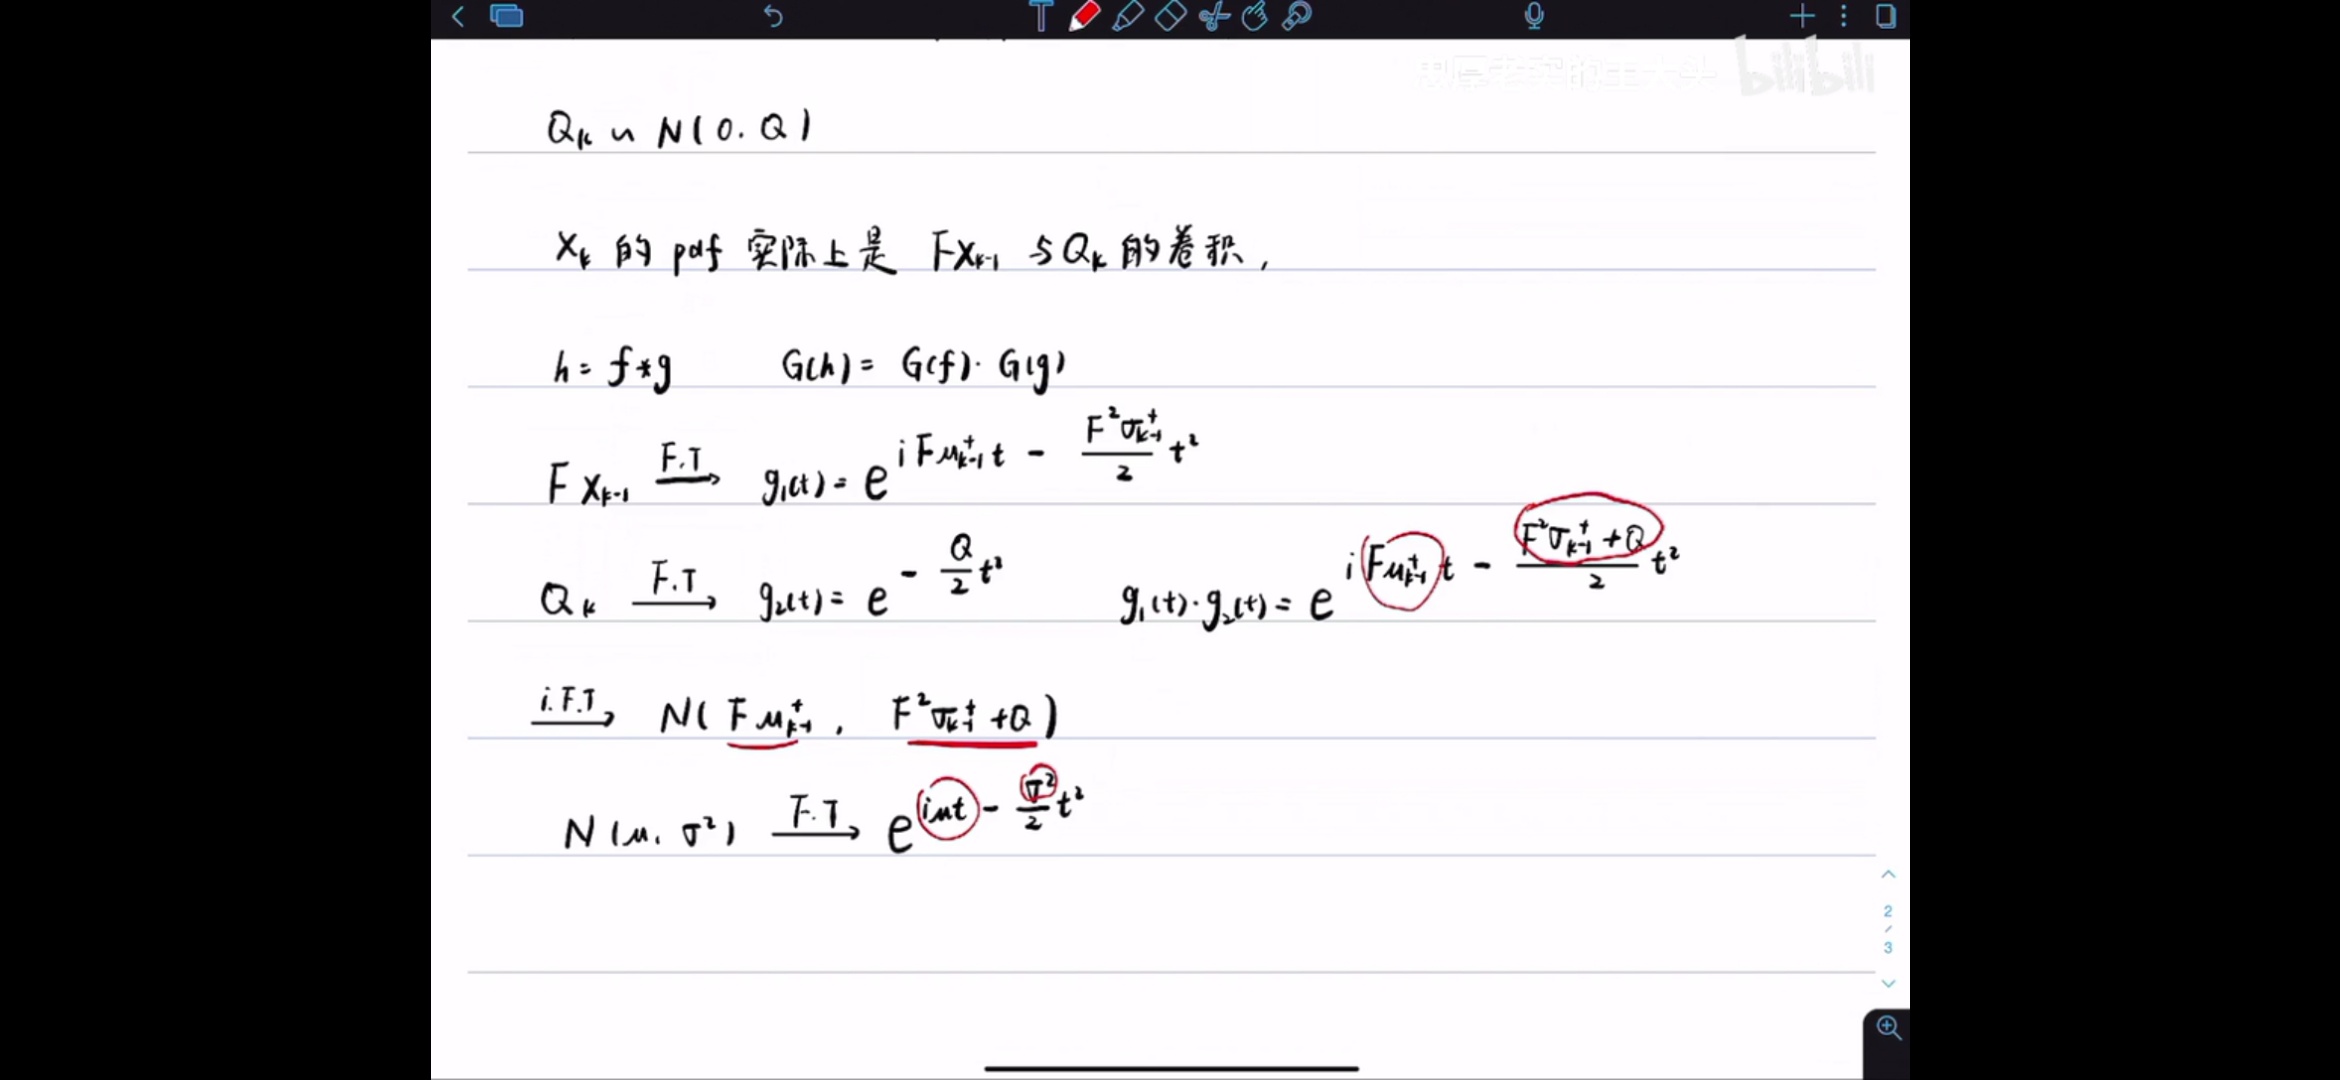 bilibili
Qₖ ~ N(0, Q)
Xₖ 的 pdf 实际上是 FXₖ₋₁ 与 Qₖ 的卷积,
h = f*g G(h) = G(f)·G(g)
F Xₖ₋₁ F.T→ g₁(t) = e^(i F μₖ₋₁⁺ t - (F²σₖ₋₁⁺/2) t²)
Qₖ F.T→ g₂(t) = e^(- (Q/2) t²) g₁(t)·g₂(t) = e^(i Fμₖ₋₁⁺ t - ((F²σₖ₋₁⁺ + Q)/2) t²)
i.F.T→ N(Fμₖ₋₁⁺, F²σₖ₋₁⁺ + Q)
N(μ, σ²) F.T→ e^(iμt - (σ²/2) t²)
2
/
3